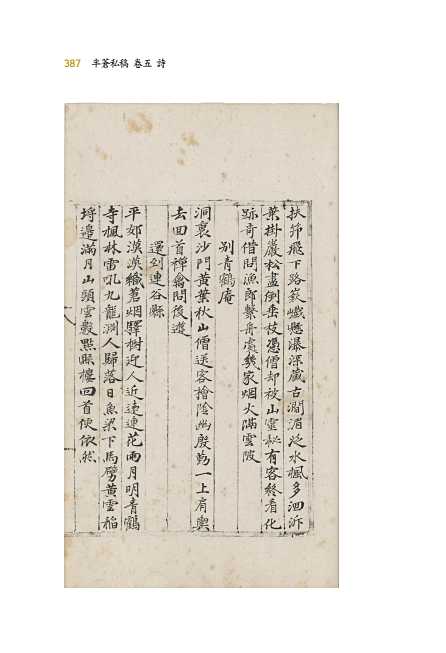 387 半蒼私稿 卷五 詩
扶笻飛下路嶔巇懸瀑深藏古澗湄泛水楓多洄泝
葉掛巖松盡倒垂枝憑僧却被山靈秘有客終看化
跡奇借問漁郎繫舟處幾家烟火隔雲陂
別青鶴庵
洞裏沙門黃葉秋山僧送客檜陰幽殷勤一上肩輿
去回首禪龕問後遊
還到連谷縣
平郊漠漠織茗烟驛樹迎人近遠連花雨月明青鶴
寺楓林雷吼九龍淵人歸落日魚梁下馬劈黃雲稻
埓邊滿月山頭雲數點縣樓回首便依然